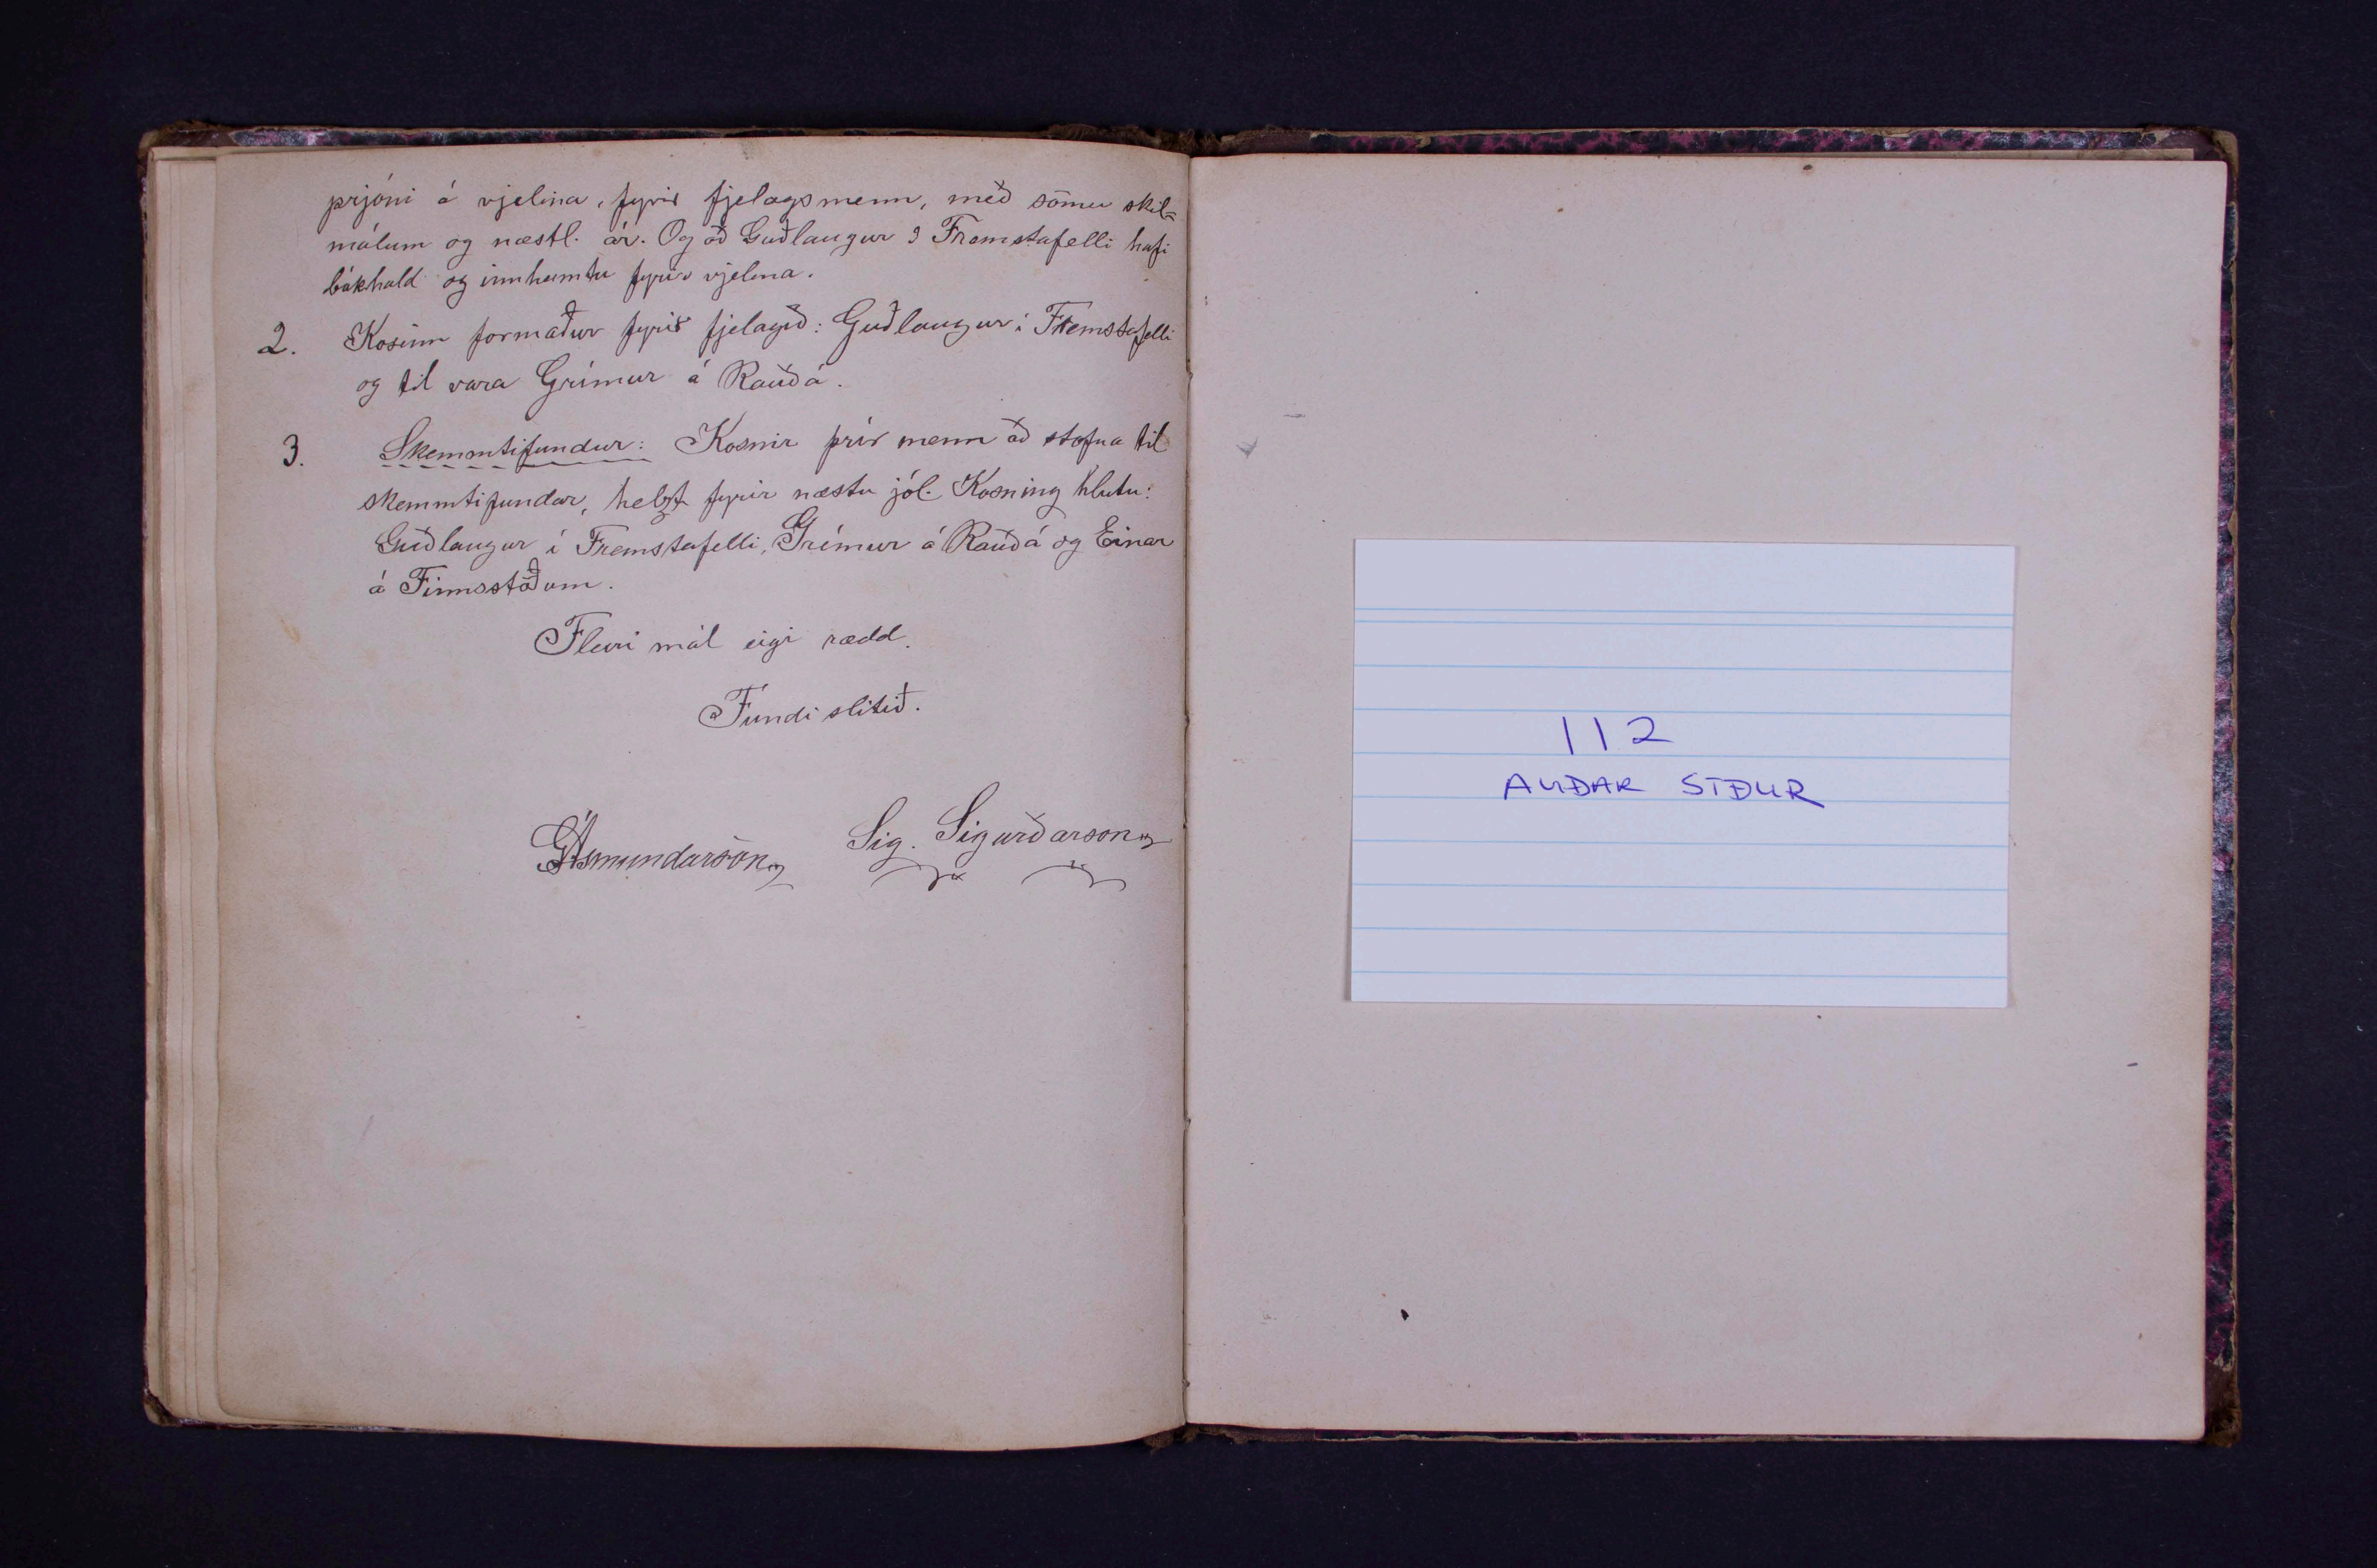 prjóni á vjelina, fyrir fjelagsmenn, með sömu skil=
málum og næstl. ár. Og að Guðlaugur í Fremstafelli hafi
bókhald og innheimtu fyrir vjelina.
2. Kosinn formaður fyrir fjelagið: Guðlaugur í Fremstafelli
og til vara Grímur á Rauðá.
3. Skemmtifundur: Kosnir þrír menn að stofna til
skemmtifundar, helzt fyrir næstu jól. Kosning hlutu:
Guðlaugur í Fremstafelli, Grímur á Rauðá og Einar
á Finnsstöðum.
Fleiri mál eigi rædd.
Fundi slitið.
GÁsmundarson
Sig. Sigurðarson
112
AUÐAR SÍÐUR